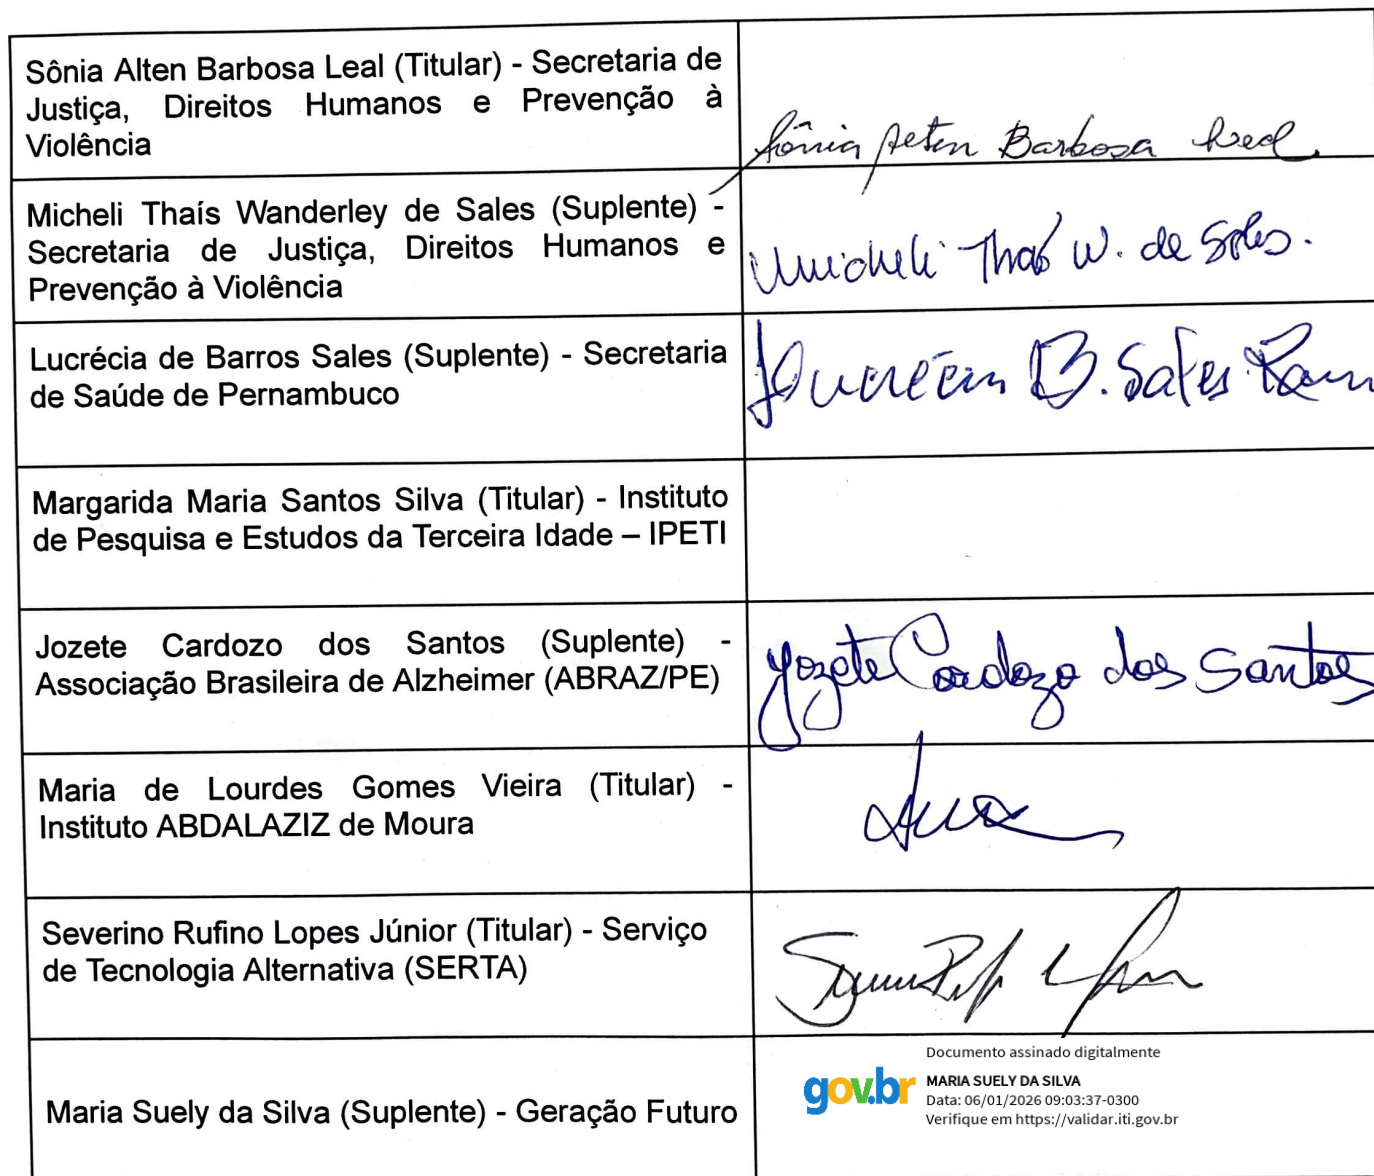 Sônia Alten Barbosa Leal (Titular) - Secretaria de
Justiça, Direitos Humanos e Prevenção à
Violência
Sônia Alten Barbosa Leal
Micheli Thaís Wanderley de Sales (Suplente) -
Secretaria de Justiça, Direitos Humanos e
Prevenção à Violência
Micheli Thaís W. de Sales.
Lucrécia de Barros Sales (Suplente) - Secretaria
de Saúde de Pernambuco
Lucrécia B. Sales
Margarida Maria Santos Silva (Titular) - Instituto
de Pesquisa e Estudos da Terceira Idade – IPETI
Jozete Cardozo dos Santos (Suplente) -
Associação Brasileira de Alzheimer (ABRAZ/PE)
Jozete Cardozo dos Santos
Maria de Lourdes Gomes Vieira (Titular) -
Instituto ABDALAZIZ de Moura
Severino Rufino Lopes Júnior (Titular) - Serviço
de Tecnologia Alternativa (SERTA)
Maria Suely da Silva (Suplente) - Geração Futuro
Documento assinado digitalmente
gov.br
MARIA SUELY DA SILVA
Data: 06/01/2026 09:03:37-0300
Verifique em https://validar.iti.gov.br